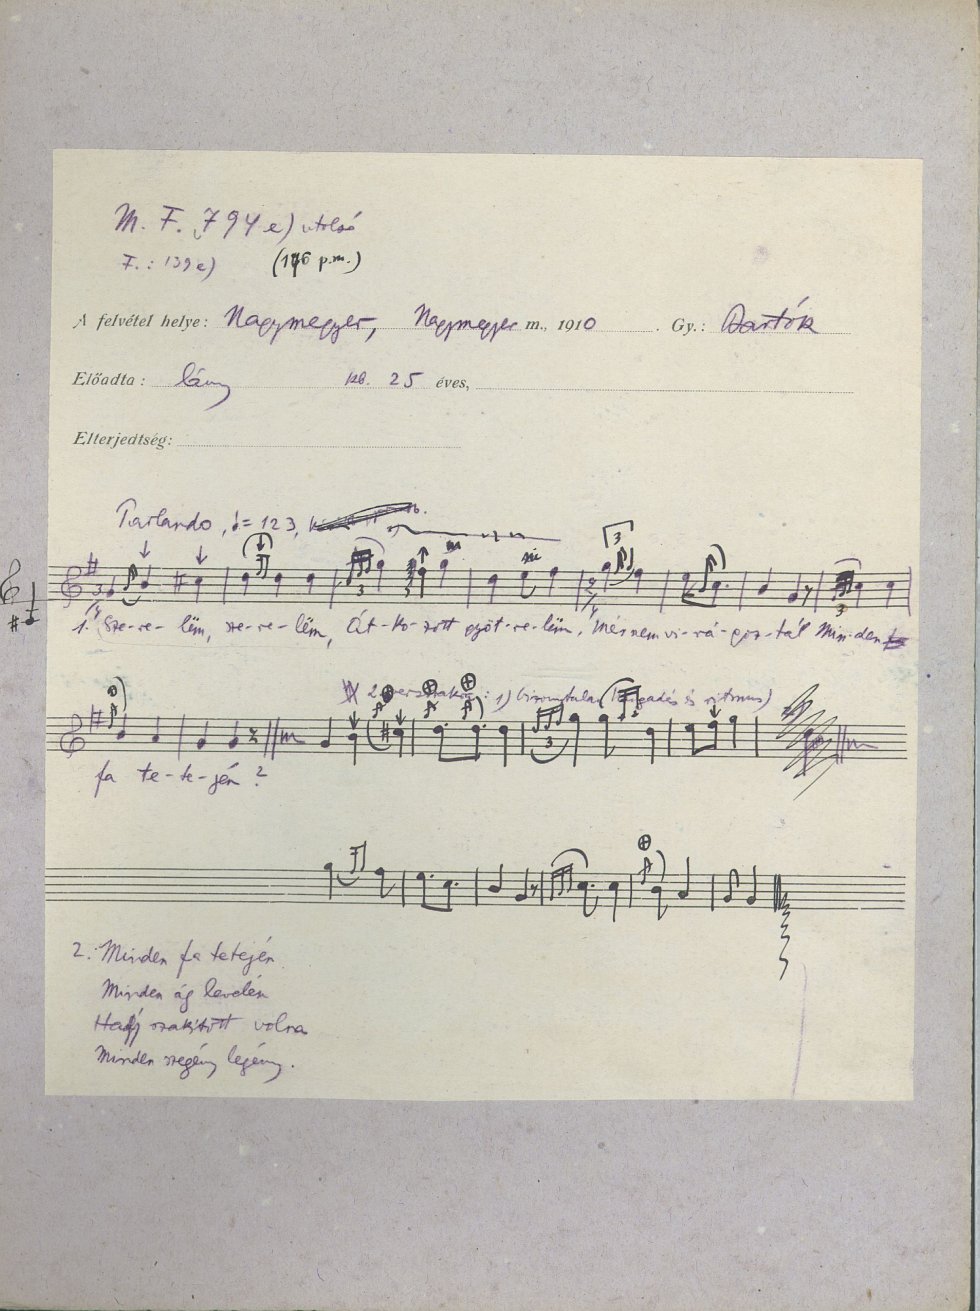 M. F. 794 e) utolsó
F.: 139 e) (176 p.m.)
A felvétel helye: Nagymegyer, Nagymegyer m., 1910. Gy.: Bartók
Előadta: lány kb. 25 éves,
Elterjedtség:
Parlando, ♩= 123,
1. Sze-re-lëm, sze-re-lëm, Át-ko-zott gyöt-re-lëm, Mér nem vi-rá-goz-tál Min-den
2. versszakra: 1) bizonytalan (tagadás és ritmus)
fa te-te-jén?
2. Minden fa tetején
Minden ág levelén
Hadj szakított volna
Minden szegény legény.